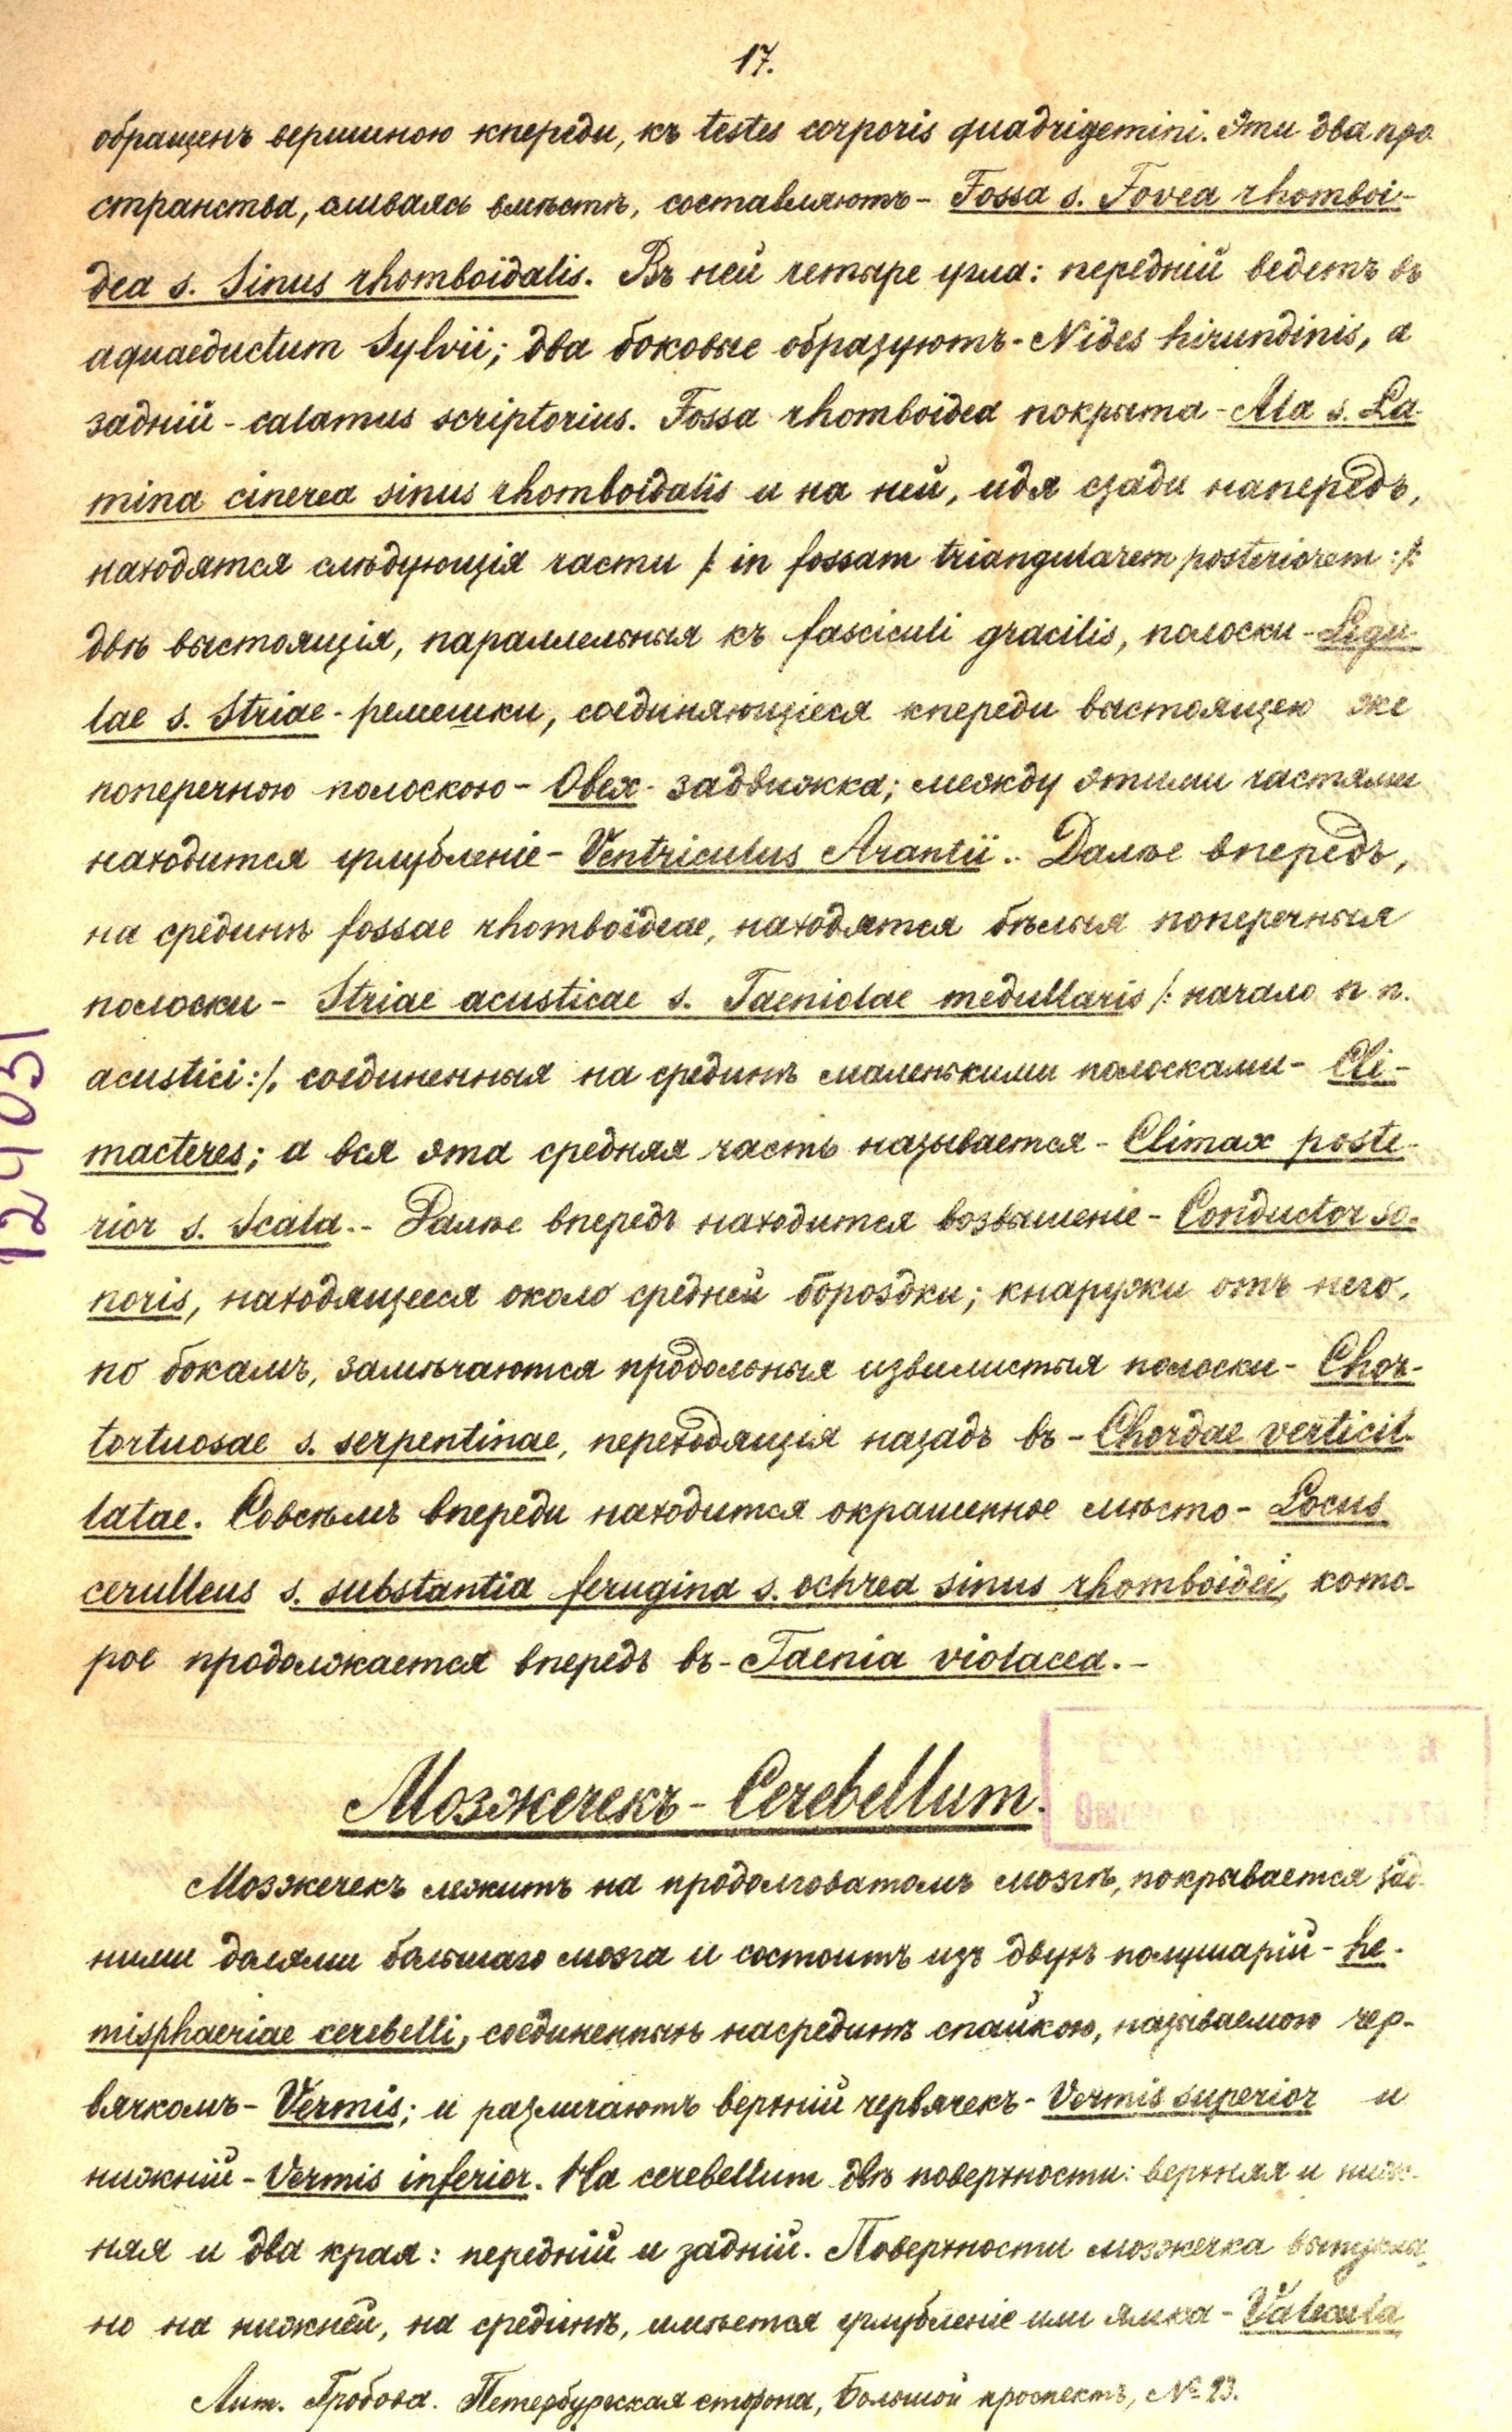 17.
обращенъ вершиною кпереди, къ testes corporis quadrigemini. Эти два про
странства, сливаясь вмѣстѣ, составляютъ - Fossa s. Fovea rhomboi-
dea s. Sinus rhomboidalis. Въ ней четыре угла: передній ведетъ въ
aquaeductum Sylvii; два боковые образуютъ - Nides hirundinis, а
задній - calamus scriptorius. Fossa rhomboïdea покрыта - Ala s. La-
mina cinerea sinus rhomboidalis и на ней, идя сзади напередъ,
находятся слѣдующія части /: in fossam triangularem posteriorem :/:
двѣ выстоящія, параллельныя къ fasciculi gracilis, полоски - Ligu-
lae s. Striae - ремешки, соединяющіеся кпереди выстоящею же
поперечною полоскою - Obex - задвижка; между этими частями
находится углубленіе - Ventriculus Arantii. - Далѣе впередъ,
на срединѣ fossae rhomboïdeae, находятся бѣлыя поперечныя
полоски - Striae acusticae s. Taeniolae medullaris /: начало n. n.
acustici :/, соединенныя на срединѣ маленькими полосками - Cli-
macteres; а вся эта средняя часть называется - Climax poste-
rior s. Scala. - Далѣе впередъ находится возвышеніе - Conductor so-
noris, находящееся около средней бороздки; кнаружи отъ него,
по бокамъ, замѣчаются продольныя извилистыя полоски - Chor-
tortuosae s. serpentinae, переходящія назадъ въ - Chordae verticil-
latae. Совсѣмъ впереди находится окрашенное мѣсто - Locus
cerulleus s. substantia ferugina s. ochrea sinus rhomboidei, кото-
рое продолжается впередъ въ - Taenia violacea. -
Мозжечекъ - Cerebellum.
Мозжечекъ лежитъ на продолговатомъ мозгѣ, покрывается зад-
ними долями большаго мозга и состоитъ изъ двухъ полушарій - he-
misphaeriae cerebelli, соединенныхъ насрединѣ спайкою, называемою чер-
вячкомъ - Vermis; и различаютъ верхній червячекъ - Vermis superior и
нижній - Vermis inferior. На cerebellum двѣ поверхности: верхняя и ниж-
няя и два края: передній и задній. Поверхности мозжечка выпукла,
но на нижней, на срединѣ, имѣется углубленіе или ямка - Valecula
Лит. Гробова. Петербургская сторона, Большой проспектъ, № 23.
124031